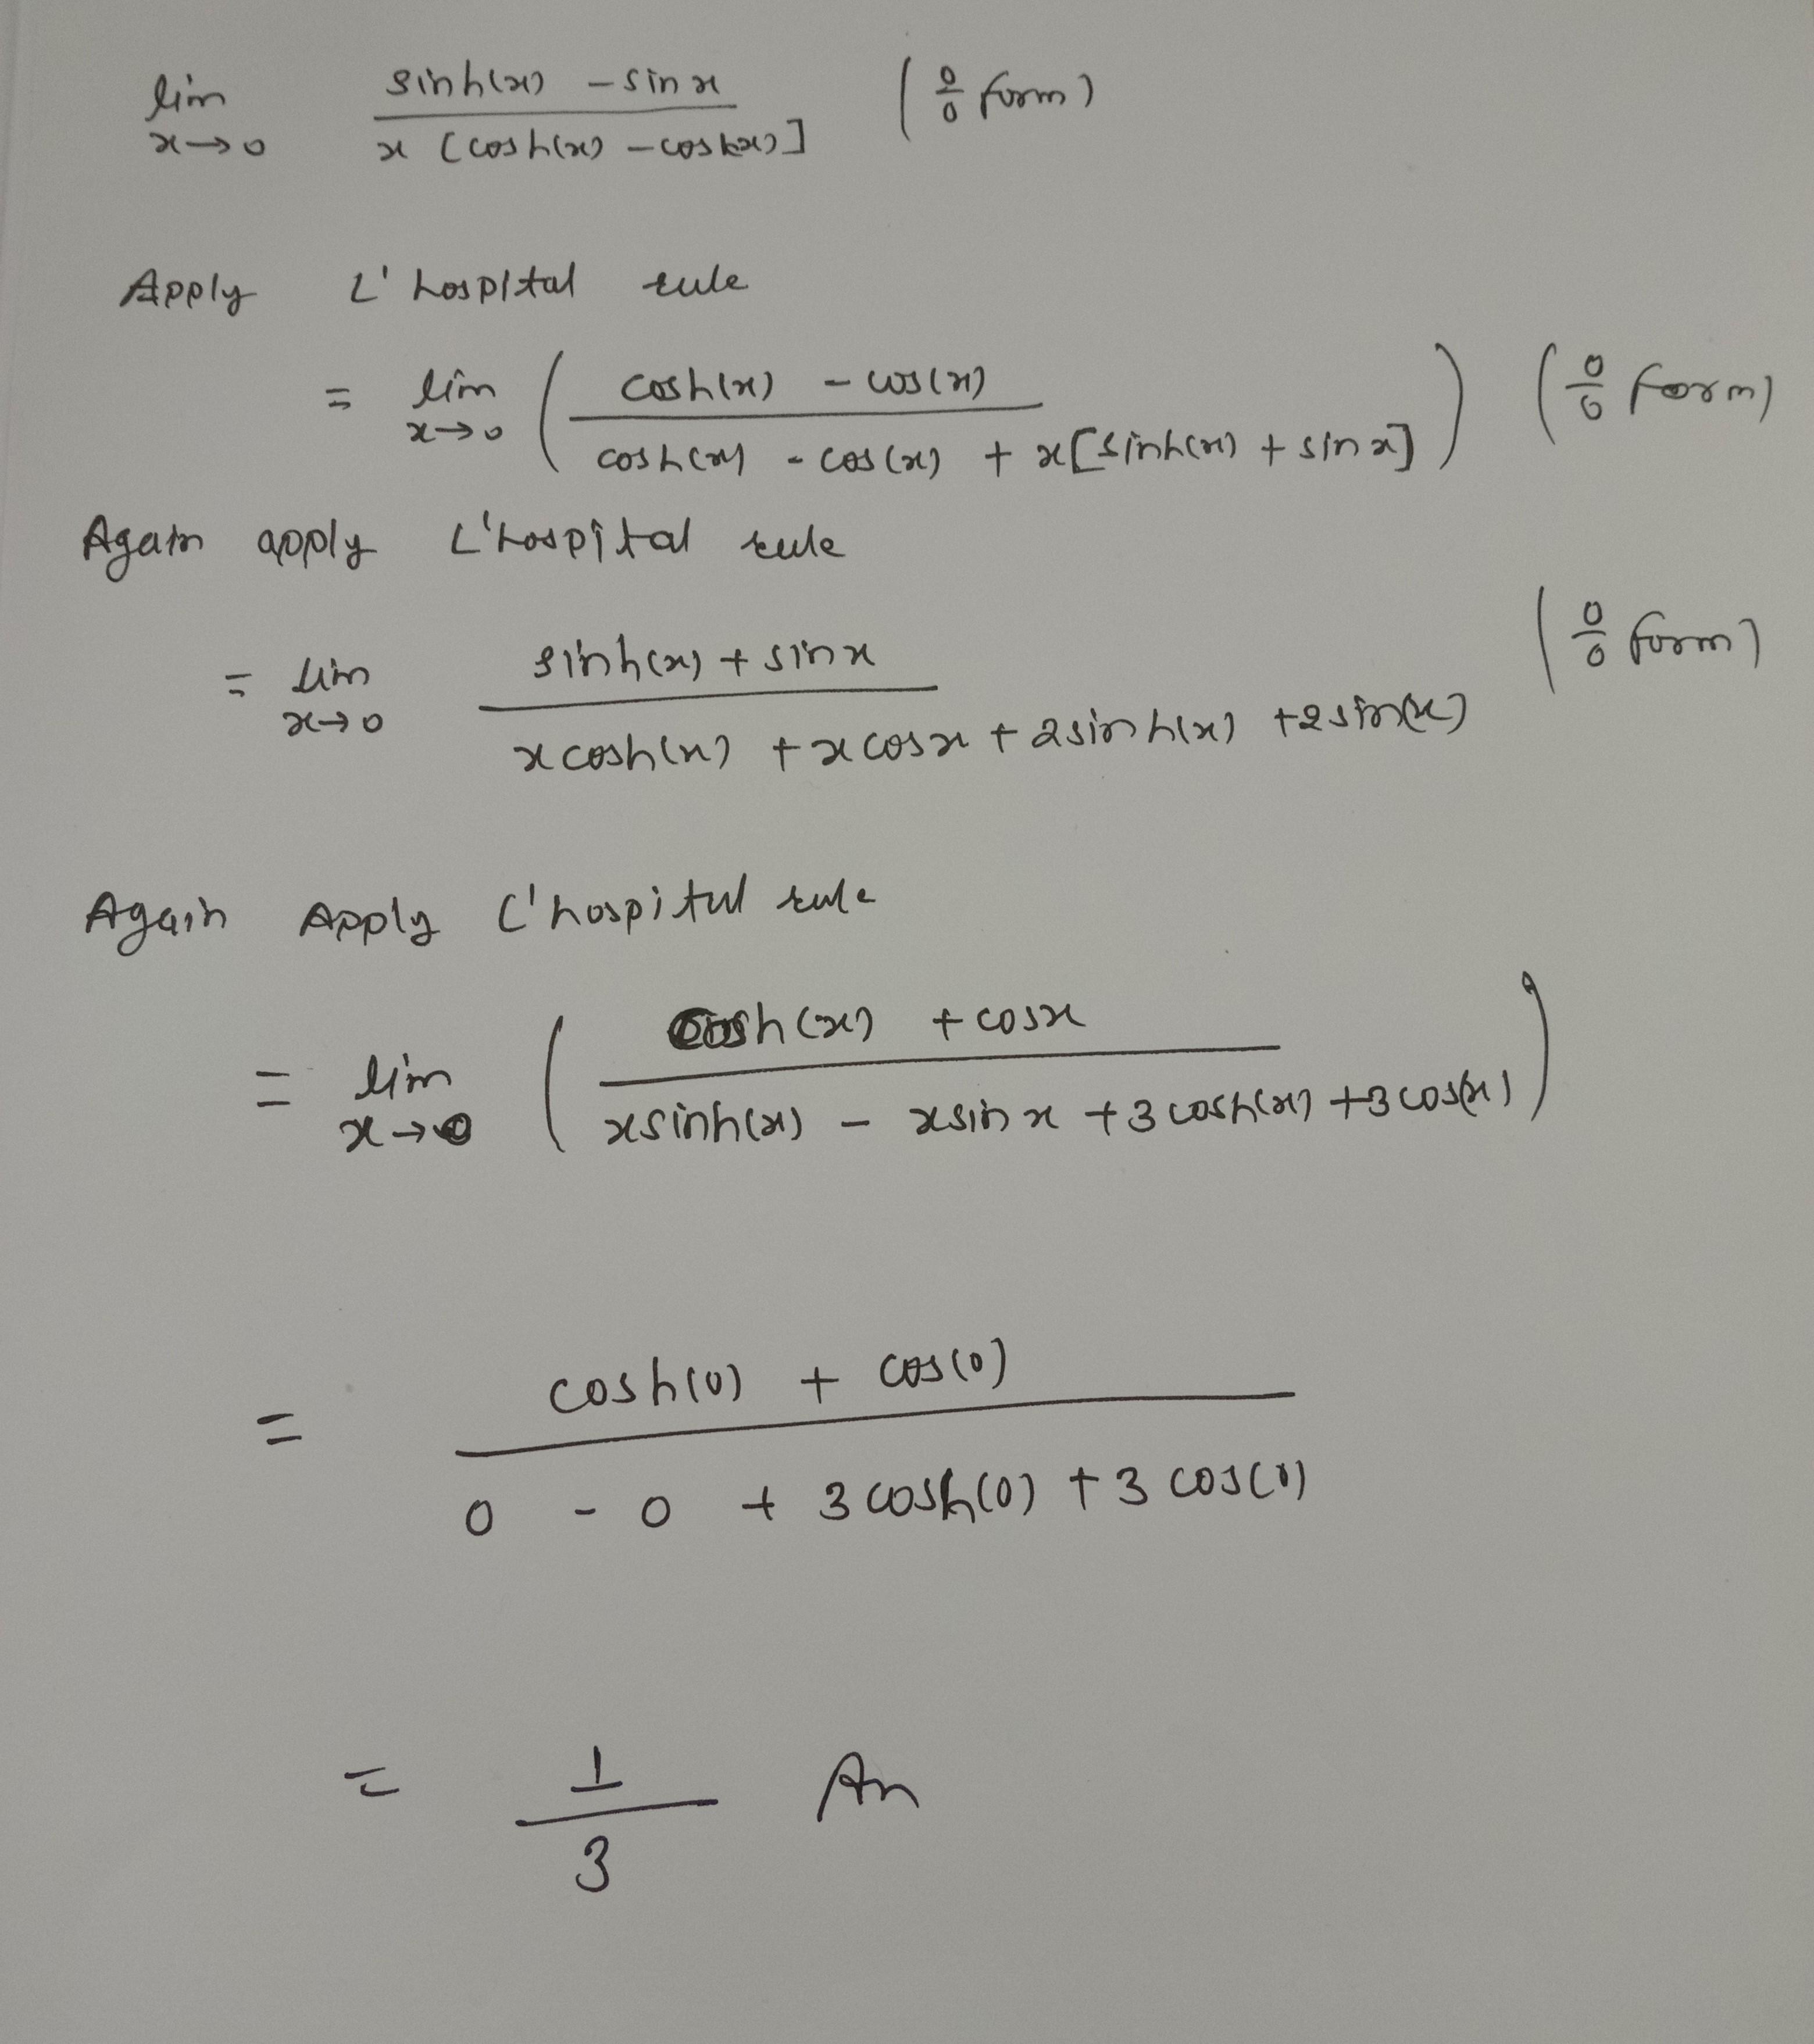 lim x→0 sinh(x) - sin x / x [cosh(x) - cos(x)] (0/0 form)
Apply L'hospital rule
= lim x→0 ( cosh(x) - cos(x) / cosh(x) - cos(x) + x[sinh(x) + sin x] ) (0/0 form)
Again apply L'hospital rule
= lim x→0 sinh(x) + sin x / x cosh(x) + x cos x + 2 sinh(x) + 2 sin(x) (0/0 form)
Again Apply L'hospital rule
= lim x→0 ( cosh(x) + cos x / x sinh(x) - x sin x + 3 cosh(x) + 3 cos(x) )
= cosh(0) + cos(0) / 0 - 0 + 3 cosh(0) + 3 cos(0)
= 1/3 An